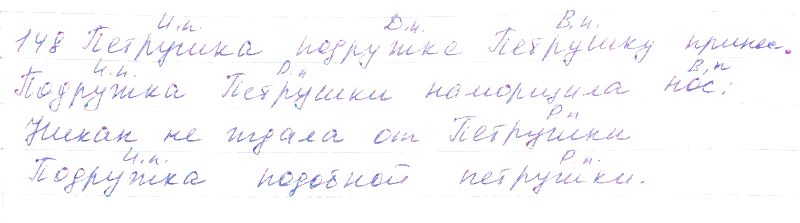 И.п. Д.п. В.п.
148 Петрушка подружке Петрушку принес.
И.п. Р.п. В.п
Подружка Петрушки наморщила нос:
Р п
Никак не ждала от Петрушки
И.п. Р п.
Подружка подобной петрушки.